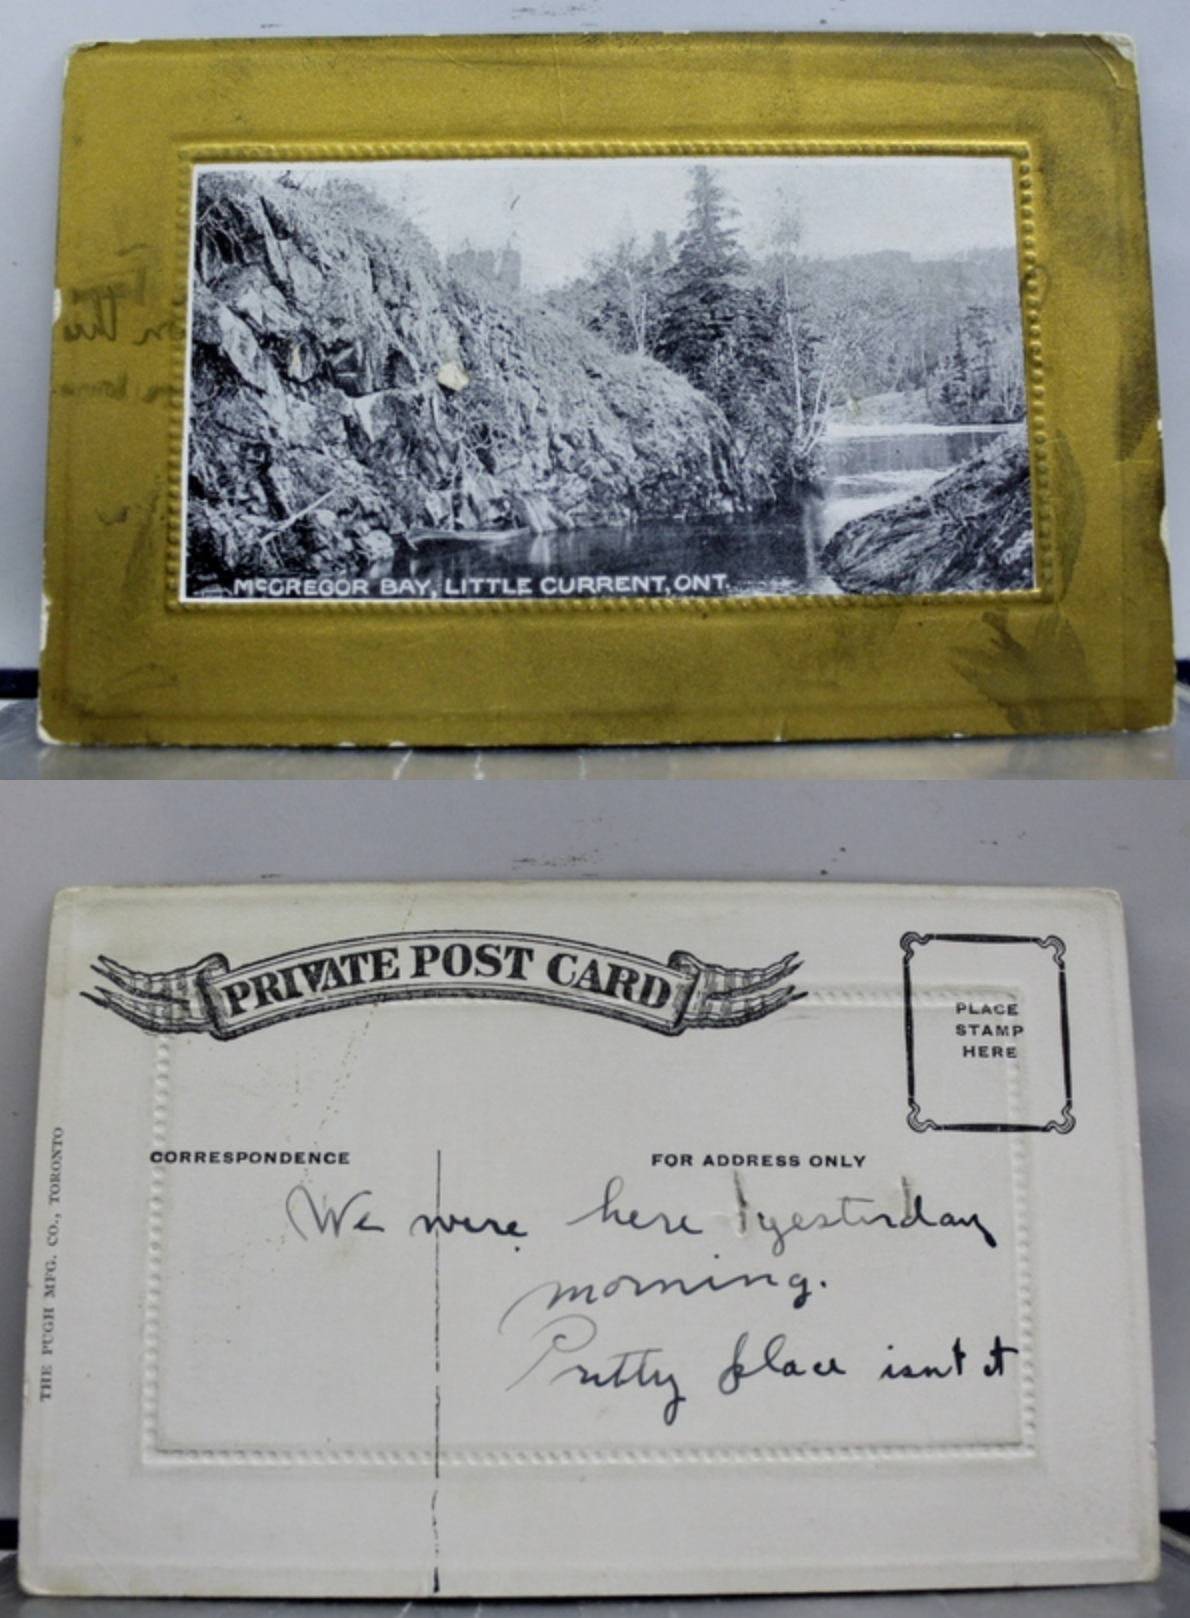 on the
McGREGOR BAY, LITTLE CURRENT, ONT.
PRIVATE POST CARD
PLACE
STAMP
HERE
CORRESPONDENCE
FOR ADDRESS ONLY
THE PUGH MFG. CO., TORONTO
We were here yesterday
morning.
Pretty place isn't it